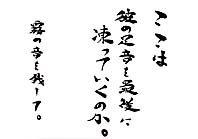 ここは
彼の足音を最後に
凍っていくのか。
霧の音を残して。